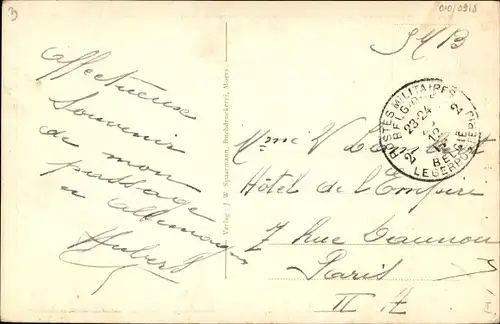 3
010/0918
SMB
Affectueux
souvenir
de mon
passage
en Allemagne
Hubert
Verlag: J. W. Spaarmann, Buchdruckerei, Moers.
POSTES MILITAIRES
BELGIQUE
23-24
BELGIE
LEGERPOSTERIJ
2
2
Mme V
Hôtel de l'Empire
7 Rue Daunou
Paris
II E